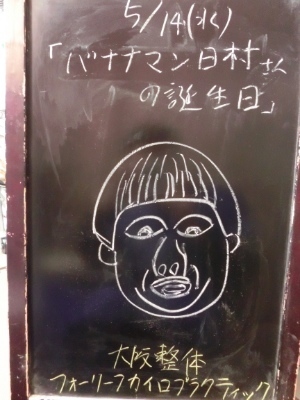 5/14(水)
「バナナマン日村さん
の誕生日」
大阪整体
フォーリーフカイロプラクティック